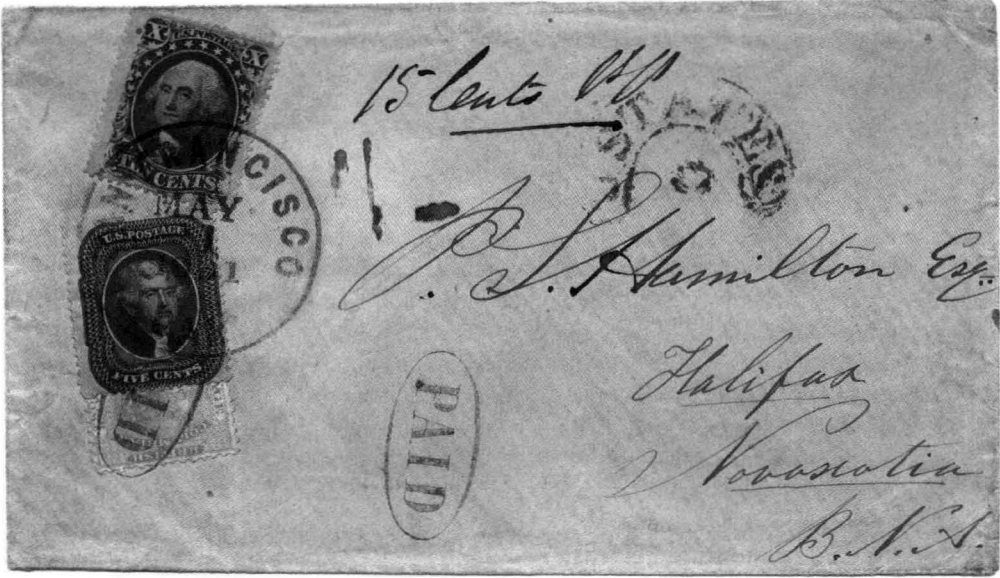 X U.S. POSTAGE X
TEN CENTS
SAN FRANCISCO
MAY
1
U.S. POSTAGE
FIVE CENTS
PAID
15 Cents
STATES
P. S. Hamilton Esq.
Halifax
Novascotia
B. N. A.
PAID